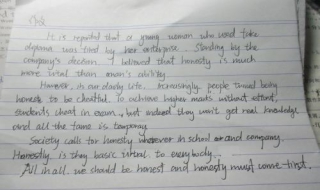 It is reported that a young woman who used fake
diploma was fired by her enterprise. Standing by the
company's decision, I believed that honesty is much
more vital than one's ability.
However, in our daily life, increasingly, people tend being
honest to be cheatful. To achieve higher marks without
students cheat in exam, but indeed they won't get real knowledge
and all the fame is temporary
Society calls for honesty wherever in school or and company.
Honestly is they basic virtual to everybody.
All in all, we should be honest and honesty must come first.